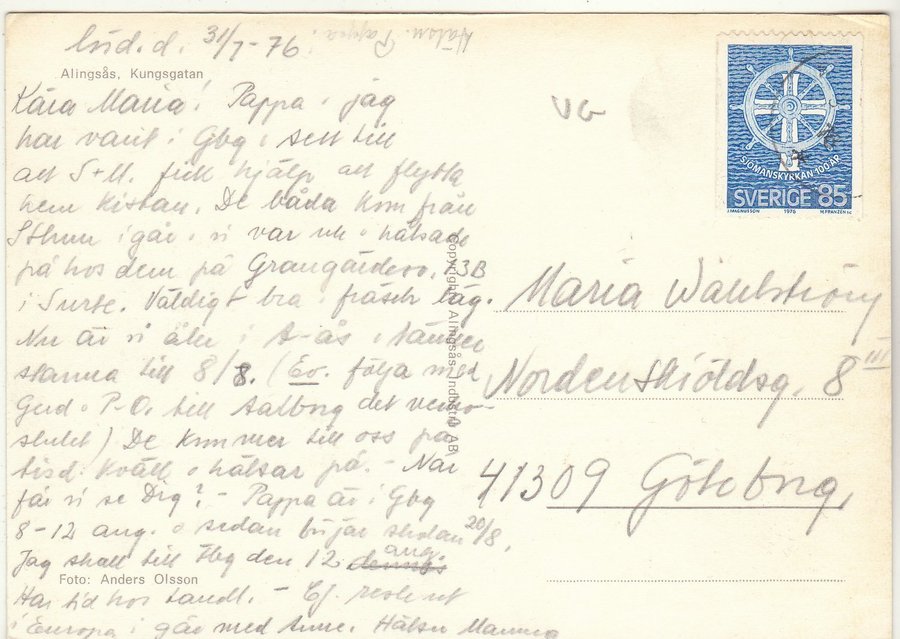 lörd. d. 31/7-76
Alingsås, Kungsgatan
Kära Maria! Pappa o jag
har varit i Gbg o sett till
att S+M. fick hjälp att flytta
hem kistan. De båda kom från
Sthlm igår o vi var ute o hälsade
på hos dem på 13B
i Surte. Väldigt bra o fräsch läg.
Nu är vi åter i A-ås o tänker
stanna till 8/8. (Ev. följa med
Gerd o P-O. till Aalborg det
slutet) De kommer till oss på
tisd. kväll o hälsar på. - När
får vi se Dig? - Pappa är i Gbg
8-12 ang. o sedan börjar skolan 20/8.
Jag skall till den 12 aug.
Foto: Anders Olsson
Har tid hos tandl. - Ef. reste ut
i Europa i går med Anne. Hälsn Mamma
Hälsn. Pappa!
Copyright Alingsås Industri AB
VG
SJÖMANSKYRKAN 100 ÅR
SVERIGE 85
J. MAGNUSSON 1976 M. FRANZÉN SC
Maria Wahlström
Nordenskiöldsg. 8 III
41309 Göteborg